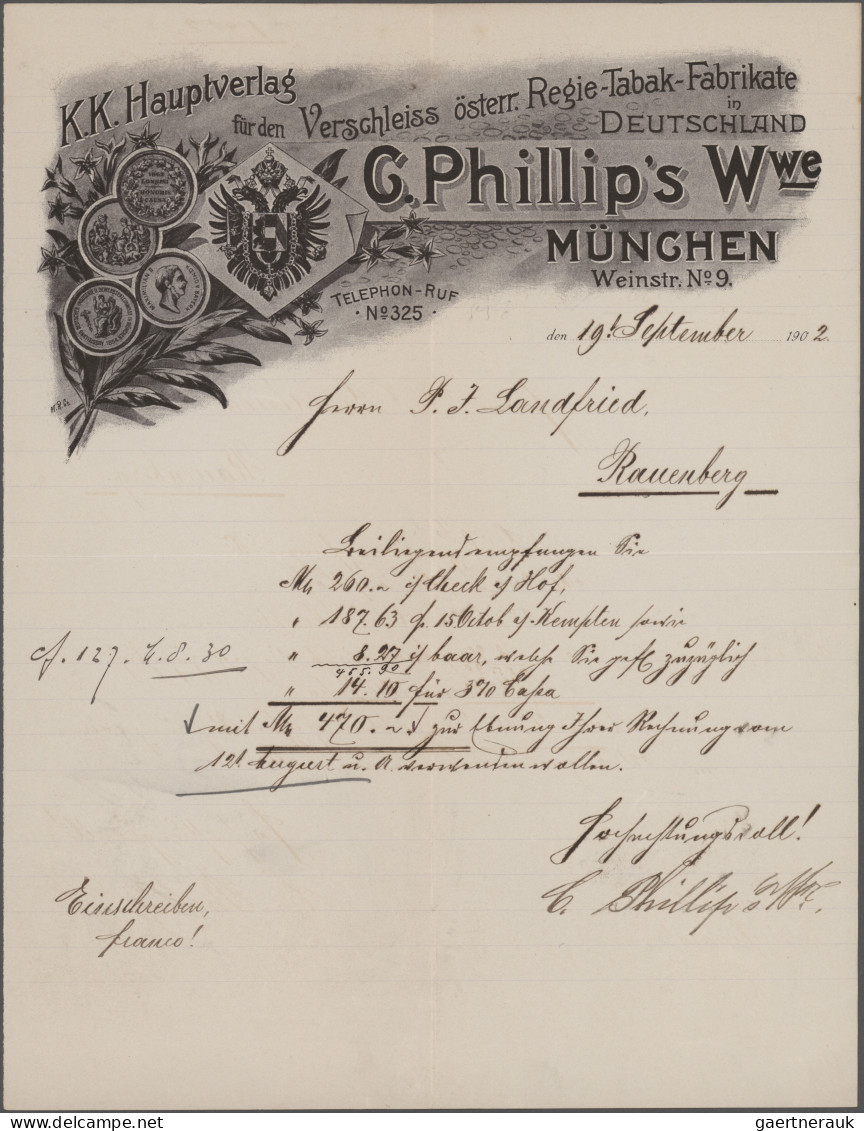 K.K. Hauptverlag
für den Verschleiss österr. Regie-Tabak-Fabrikate
in
DEUTSCHLAND
C. Phillip's Wwe
MÜNCHEN
Weinstr. No 9.
TELEPHON-RUF
· No 325 ·
den 19t September 1902.
Herrn P. J. Landfried,
Rauenberg
Beiliegend empfangen Sie
Mk 260.- p/ Check a/ Hof,
" 187.63 p. 15 Octob a/ Kempten sowie
" 8.27 in baar, welche Sie gefl zuzüglich
455.90
" 14.10 für 3% Cassa
mit Mk 470.- zur Ebnung Ihrer Rechnung vom
12t August u. A. verwenden wollen.
127. 8.30
Hochachtungsvoll!
C. Phillip's Wwe.
Einschreiben,
franco!
gaertnerauk